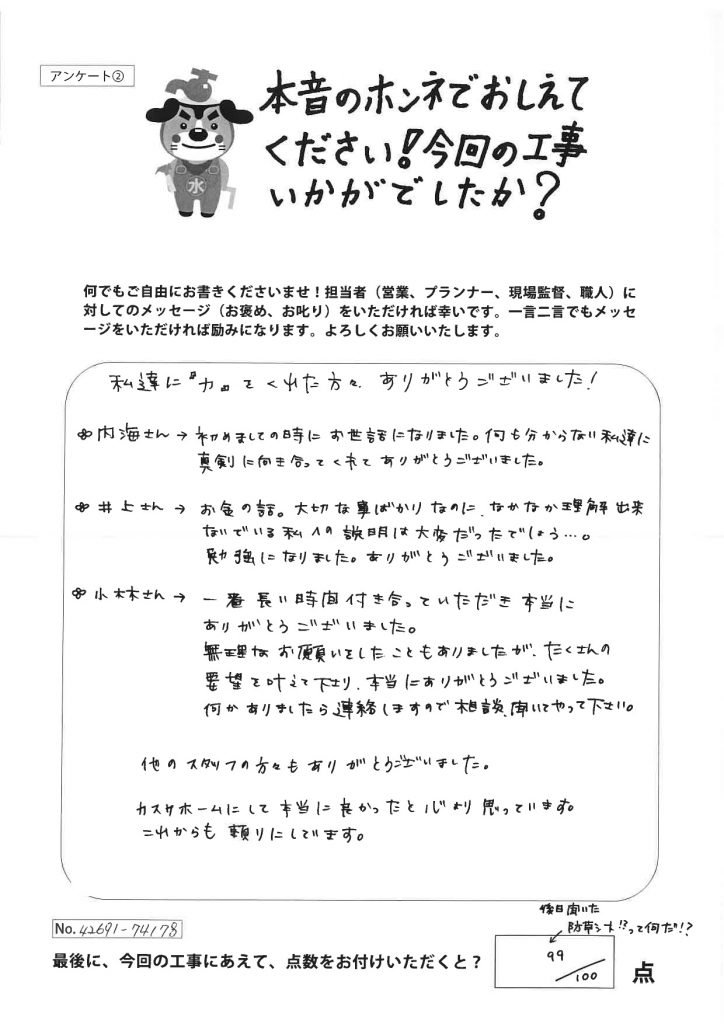 アンケート②
本音のホンネでおしえて
ください!今回の工事
いかがでしたか?
水
何でもご自由にお書きくださいませ!担当者(営業、プランナー、現場監督、職人)に
対してのメッセージ(お褒め、お叱り)をいただければ幸いです。一言二言でもメッセ
ージをいただければ励みになります。よろしくお願いいたします。
私達に『力』をくれた方々、ありがとうございました!
内海さん→初めましての時にお世話になりました。何も分からない私達に
真剣に向き合ってくれてありがとうございました。
井上さん→お金の話。大切な事ばかりなのに、なかなか理解出来
ないでいる私への説明は大変だったでしょう…。
勉強になりました。ありがとうございました。
小林さん→一番長い時間付き合っていただき本当に
ありがとうございました。
無理なお願いをしたこともありましたが、たくさんの
要望を叶えて下さり、本当にありがとうございました。
何かありましたら連絡しますので相談、聞いてやって下さい。
他のスタッフの方々もありがとうございました。
カスケホームにして本当に良かったと心より思っています。
これからも頼りにしています。
No.42691-74178
後日聞いた
防草シート!?って何だ!?
最後に、今回の工事にあえて、点数をお付けいただくと?
99/100 点